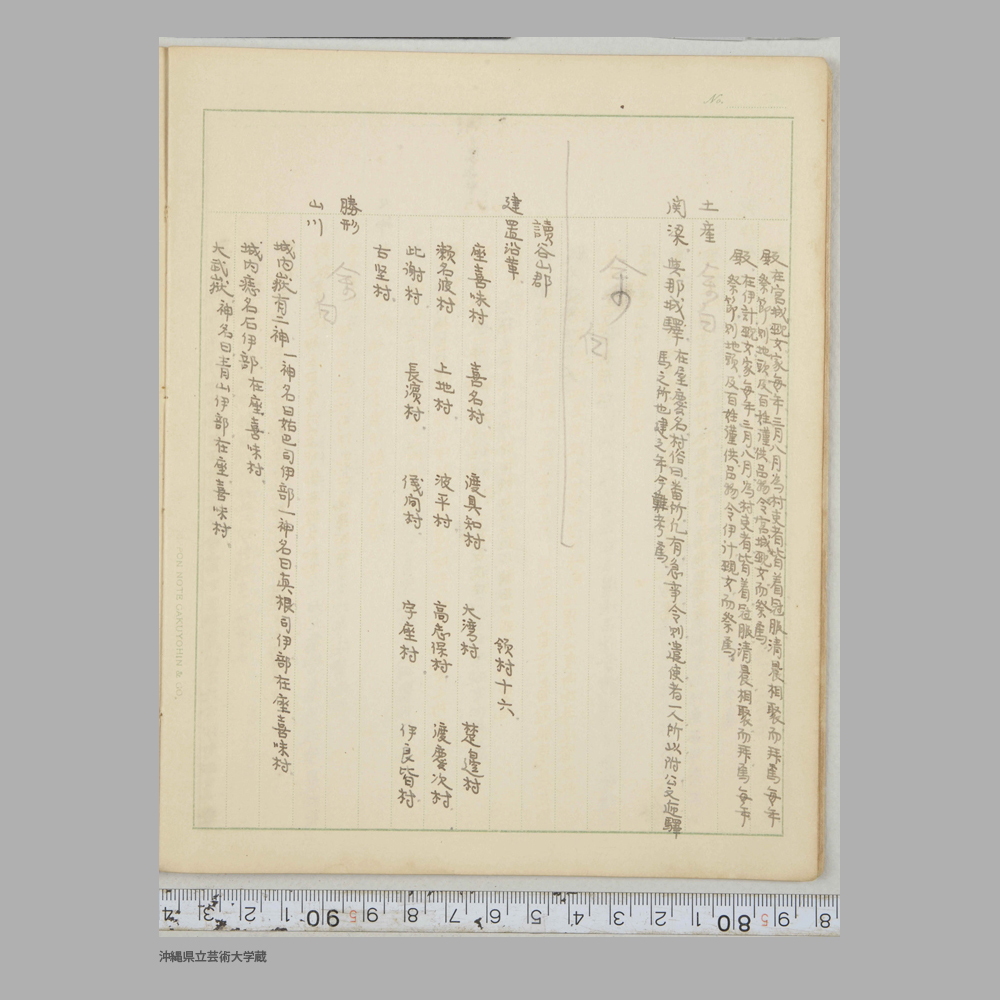 殿 在宮城覡女家毎年三月八月為村吏者皆着冠服清晨相聚而拜焉毎年
祭節則地頭及百姓謹供品物令宮城覡女而祭焉
殿 在伊計覡女家毎年三月八月為村吏者皆着冠服清晨相聚而拜焉毎年
祭節則地頭及百姓謹供品物令伊計覡女而祭焉。
土産
関梁 與那城驛 在屋慶名村俗曰番所凡有急事令則遣使者一人所以附公文迎驛
馬之所也建之年今難考焉。
讀谷山郡
建置沿革 領村十六
座喜味村 喜名村 渡具知村 大湾村 楚邉村
瀬名波村 上地村 波平村 高志保村 渡慶次村
此謝村 長濱村 儀間村 宇座村 伊良皆村
古堅村
勝形
山川
城内嶽有二神一神名曰 司伊部一神名曰真根司伊部在座喜味村
城内 名石伊部在座喜味村
大 嶽神名曰青山伊部在座喜味村。
No.
沖縄県立芸術大学蔵